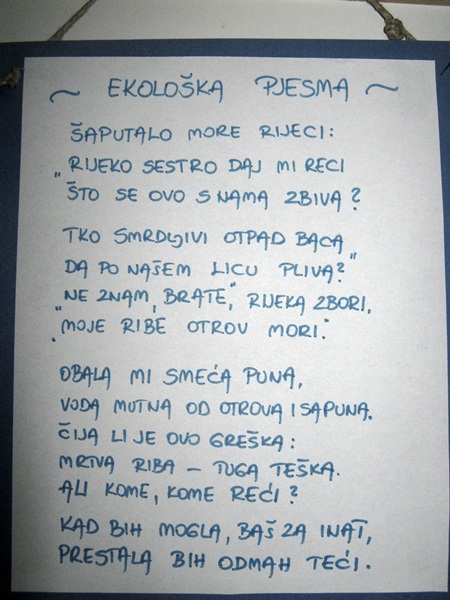 ~ EKOLOŠKA PJESMA ~
ŠAPUTALO MORE RIJECI:
„RIJEKO SESTRO DAJ MI RECI
ŠTO SE OVO S NAMA ZBIVA?
TKO SMRDLJIVI OTPAD BACA
DA PO NAŠEM LICU PLIVA?"
"NE ZNAM, BRATE", RIJEKA ZBORI,
"MOJE RIBE OTROV MORI."
OBALA MI SMEĆA PUNA,
VODA MUTNA OD OTROVA I SAPUNA.
ČIJA LI JE OVO GREŠKA:
MRTVA RIBA – TUGA TEŠKA.
ALI KOME, KOME REĆI?
KAD BIH MOGLA, BAŠ ZA INAT,
PRESTALA BIH ODMAH TEĆI.